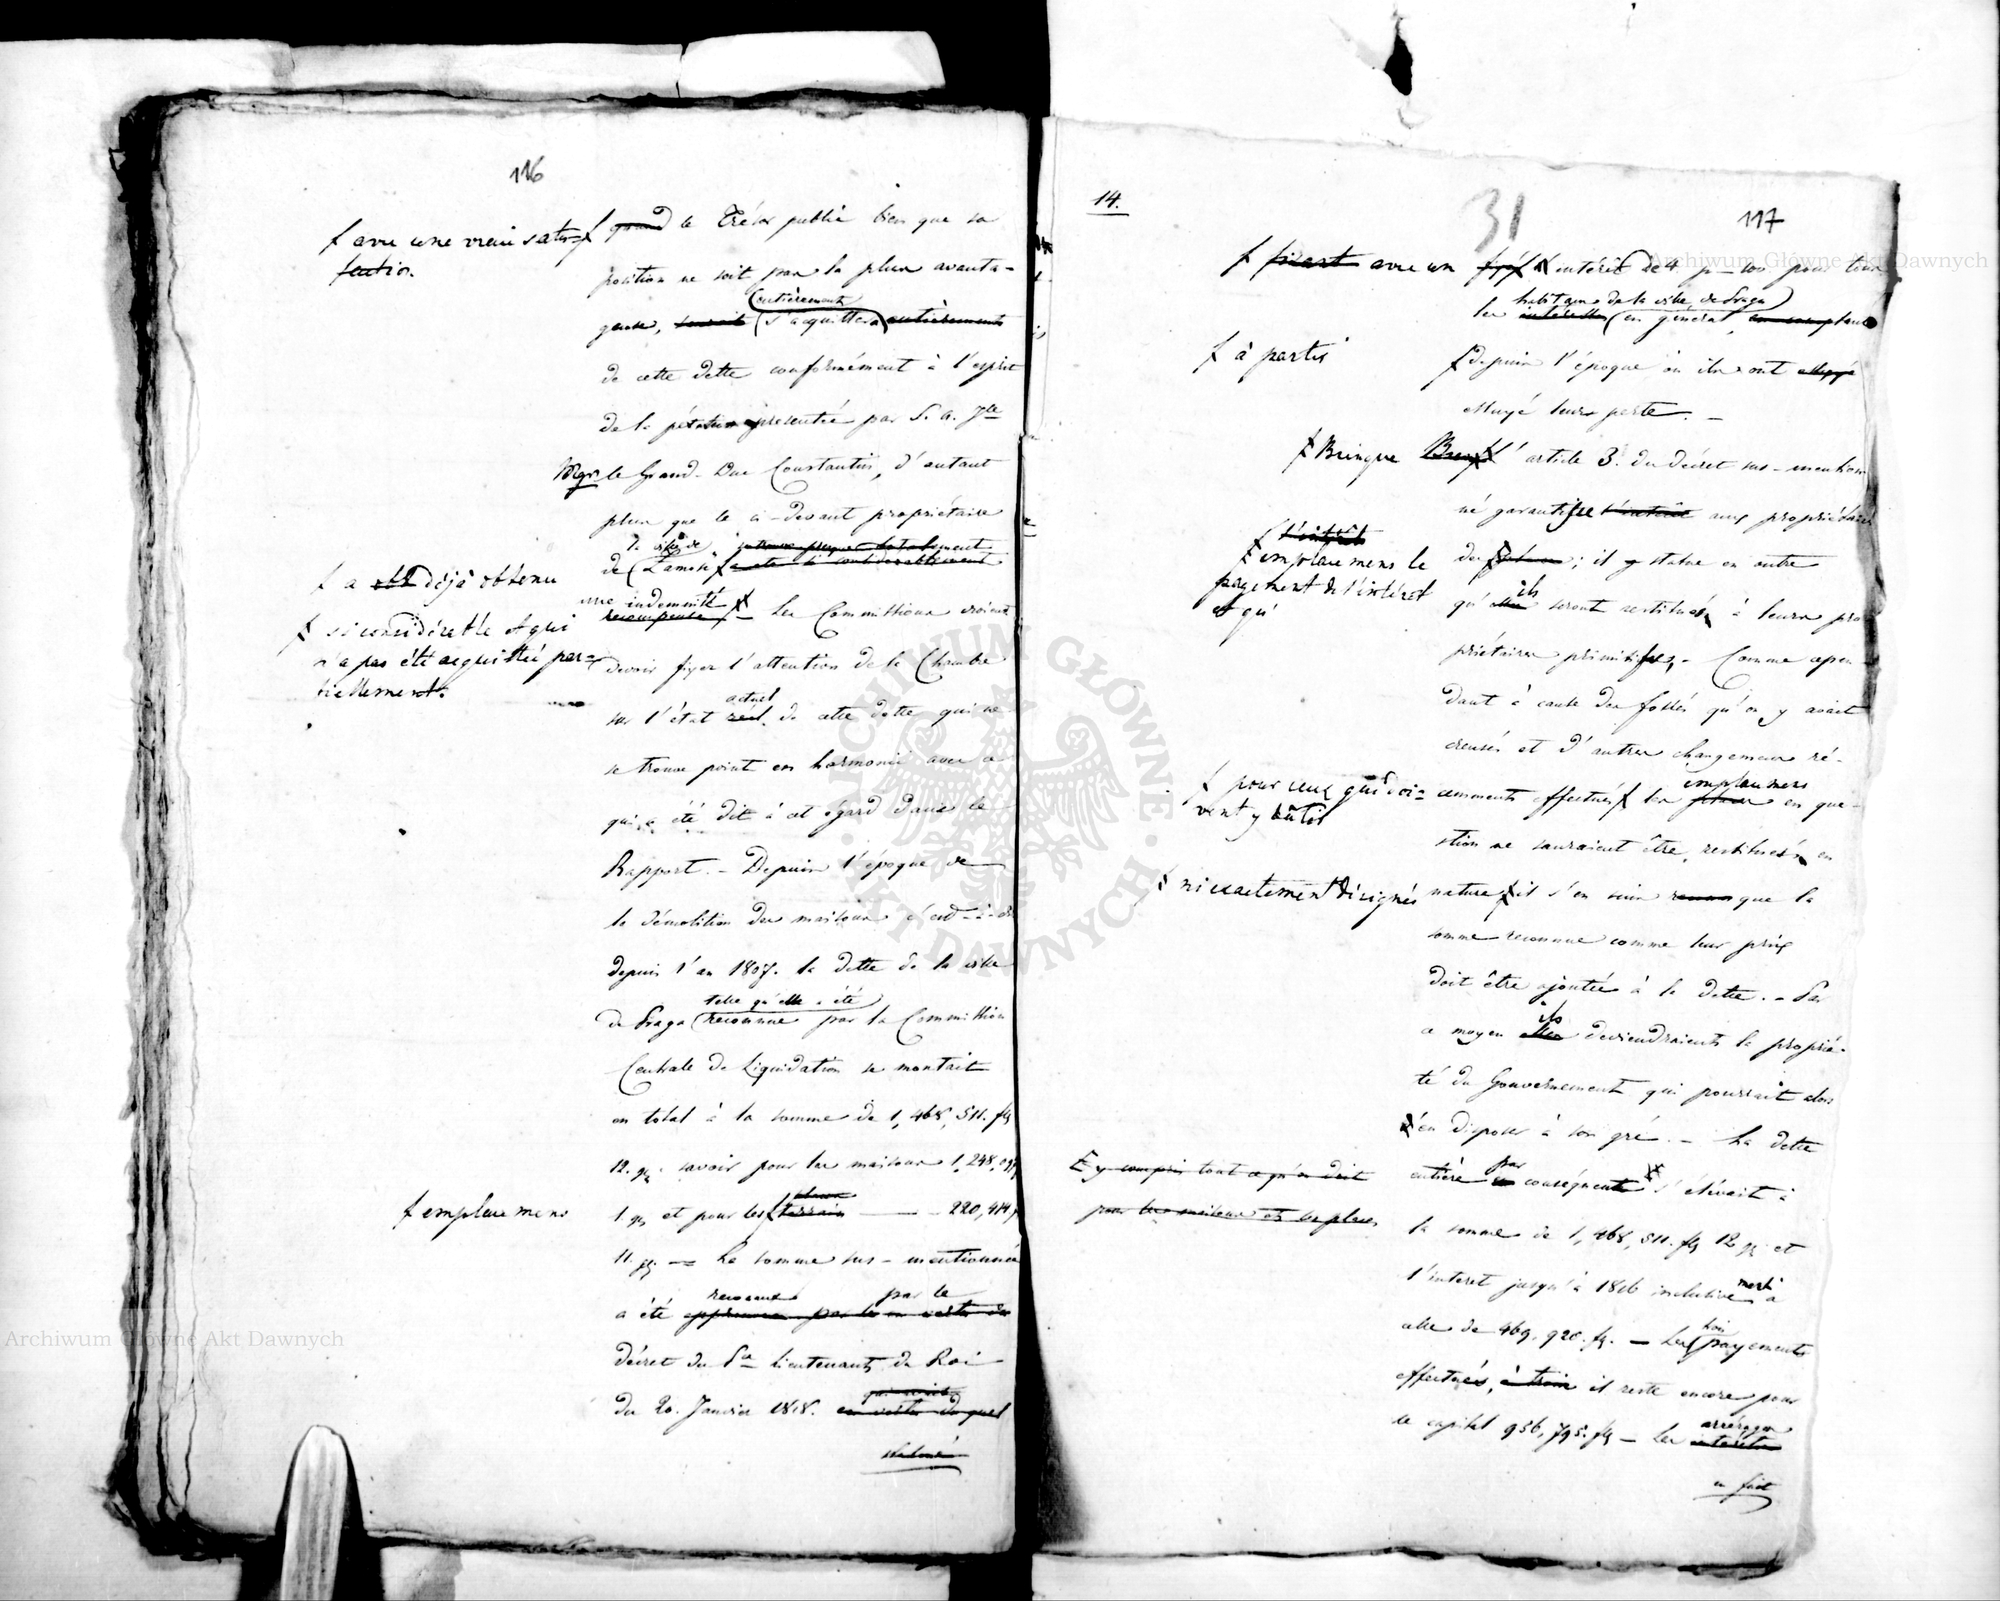 116
f avec une vraie satis=
faction.
f quand le Trésor public bien que sa
position ne soit pas la plus avanta-
entièrement
geuse, s'acquittera entièrement
de cette dette conformément à l'esprit
de la pétition présentée par S. A. Jle
Mgr le Grand-Duc Constantin, d'autant
plus que le ci-devant propriétaire
la ville de
de Zamość
f a déjà obtenu
une indemnité
recompense f - Les Commissions croient
f si considérable et qui
n'a pas été acquittée par=
tiellement.
devoir fixer l'attention de la Chambre
actuel
sur l'état réel de cette dette qui ne
se trouve point en harmonie avec ce
qui a été dit à cet égard dans le
Rapport. - Depuis l'époque de
la démolition des maisons c'est-à-dire
depuis l'an 1807. la dette de la ville
telle qu'elle a été
de Praga reconnue par la Commission
Centrale de Liquidation se montait
en total à la somme de 1,468,511. fl
12. gr. savoir pour les maisons 1,248,097
f emplacemens
places
1 gr et pour les f terrain — - 220,414
11. gr. — La somme sus-mentionnée
reconnue par le
a été
décret du Pce Lieutenant du Roi
du 20. Janvier 1818. en vertu duquel
statué
14.
31
117
f fixant avec un fixé intérêt de 4 p-100 pour tous
habitans de la ville de Praga
les intéressés en général, en comptant
f à partir
f depuis l'époque où ils ont
essuyé leurs perte. -
f Puisque l'article 3. du décret sus-mention
né garantisse l'intérêt aux propriétaires
l'intérêt
f emplacemens le
payement de l'intéret
et qu'
des places; il y statue en outre
ils
qu'elles seront restitués à leurs pro
priétaires primitifs, - Comme cepen-
dant à cause des fossés qu'on y avait
creusés et d'autres changemens ré-
f pour ceux qui doi=
vent y bâtir
emplacemens
cemments effectués f les places en que-
stion ne sauraient être, restitués en
f ni exactement désignés
nature f il s'en suit que la
somme reconnue comme leur prix
doit être ajoutée à la dette. - Par
ils
ce moyen elles deviendraient la proprié-
té du Gouvernement qui pourrait alors
en disposer à son gré. - La dette
E y compris tout ce qu'on doit
pour les maisons et les places
par
entière en conséquent s'élevait à
la somme de 1,468,511. fl 12 gr et
l'interet jusqu'à 1816 inclusive à
celle de 469,920. fl. - Les trois payements
effectués, à trois il reste encore pour
le capital 956,795. fl - Les
arrérages
intérêts
en font